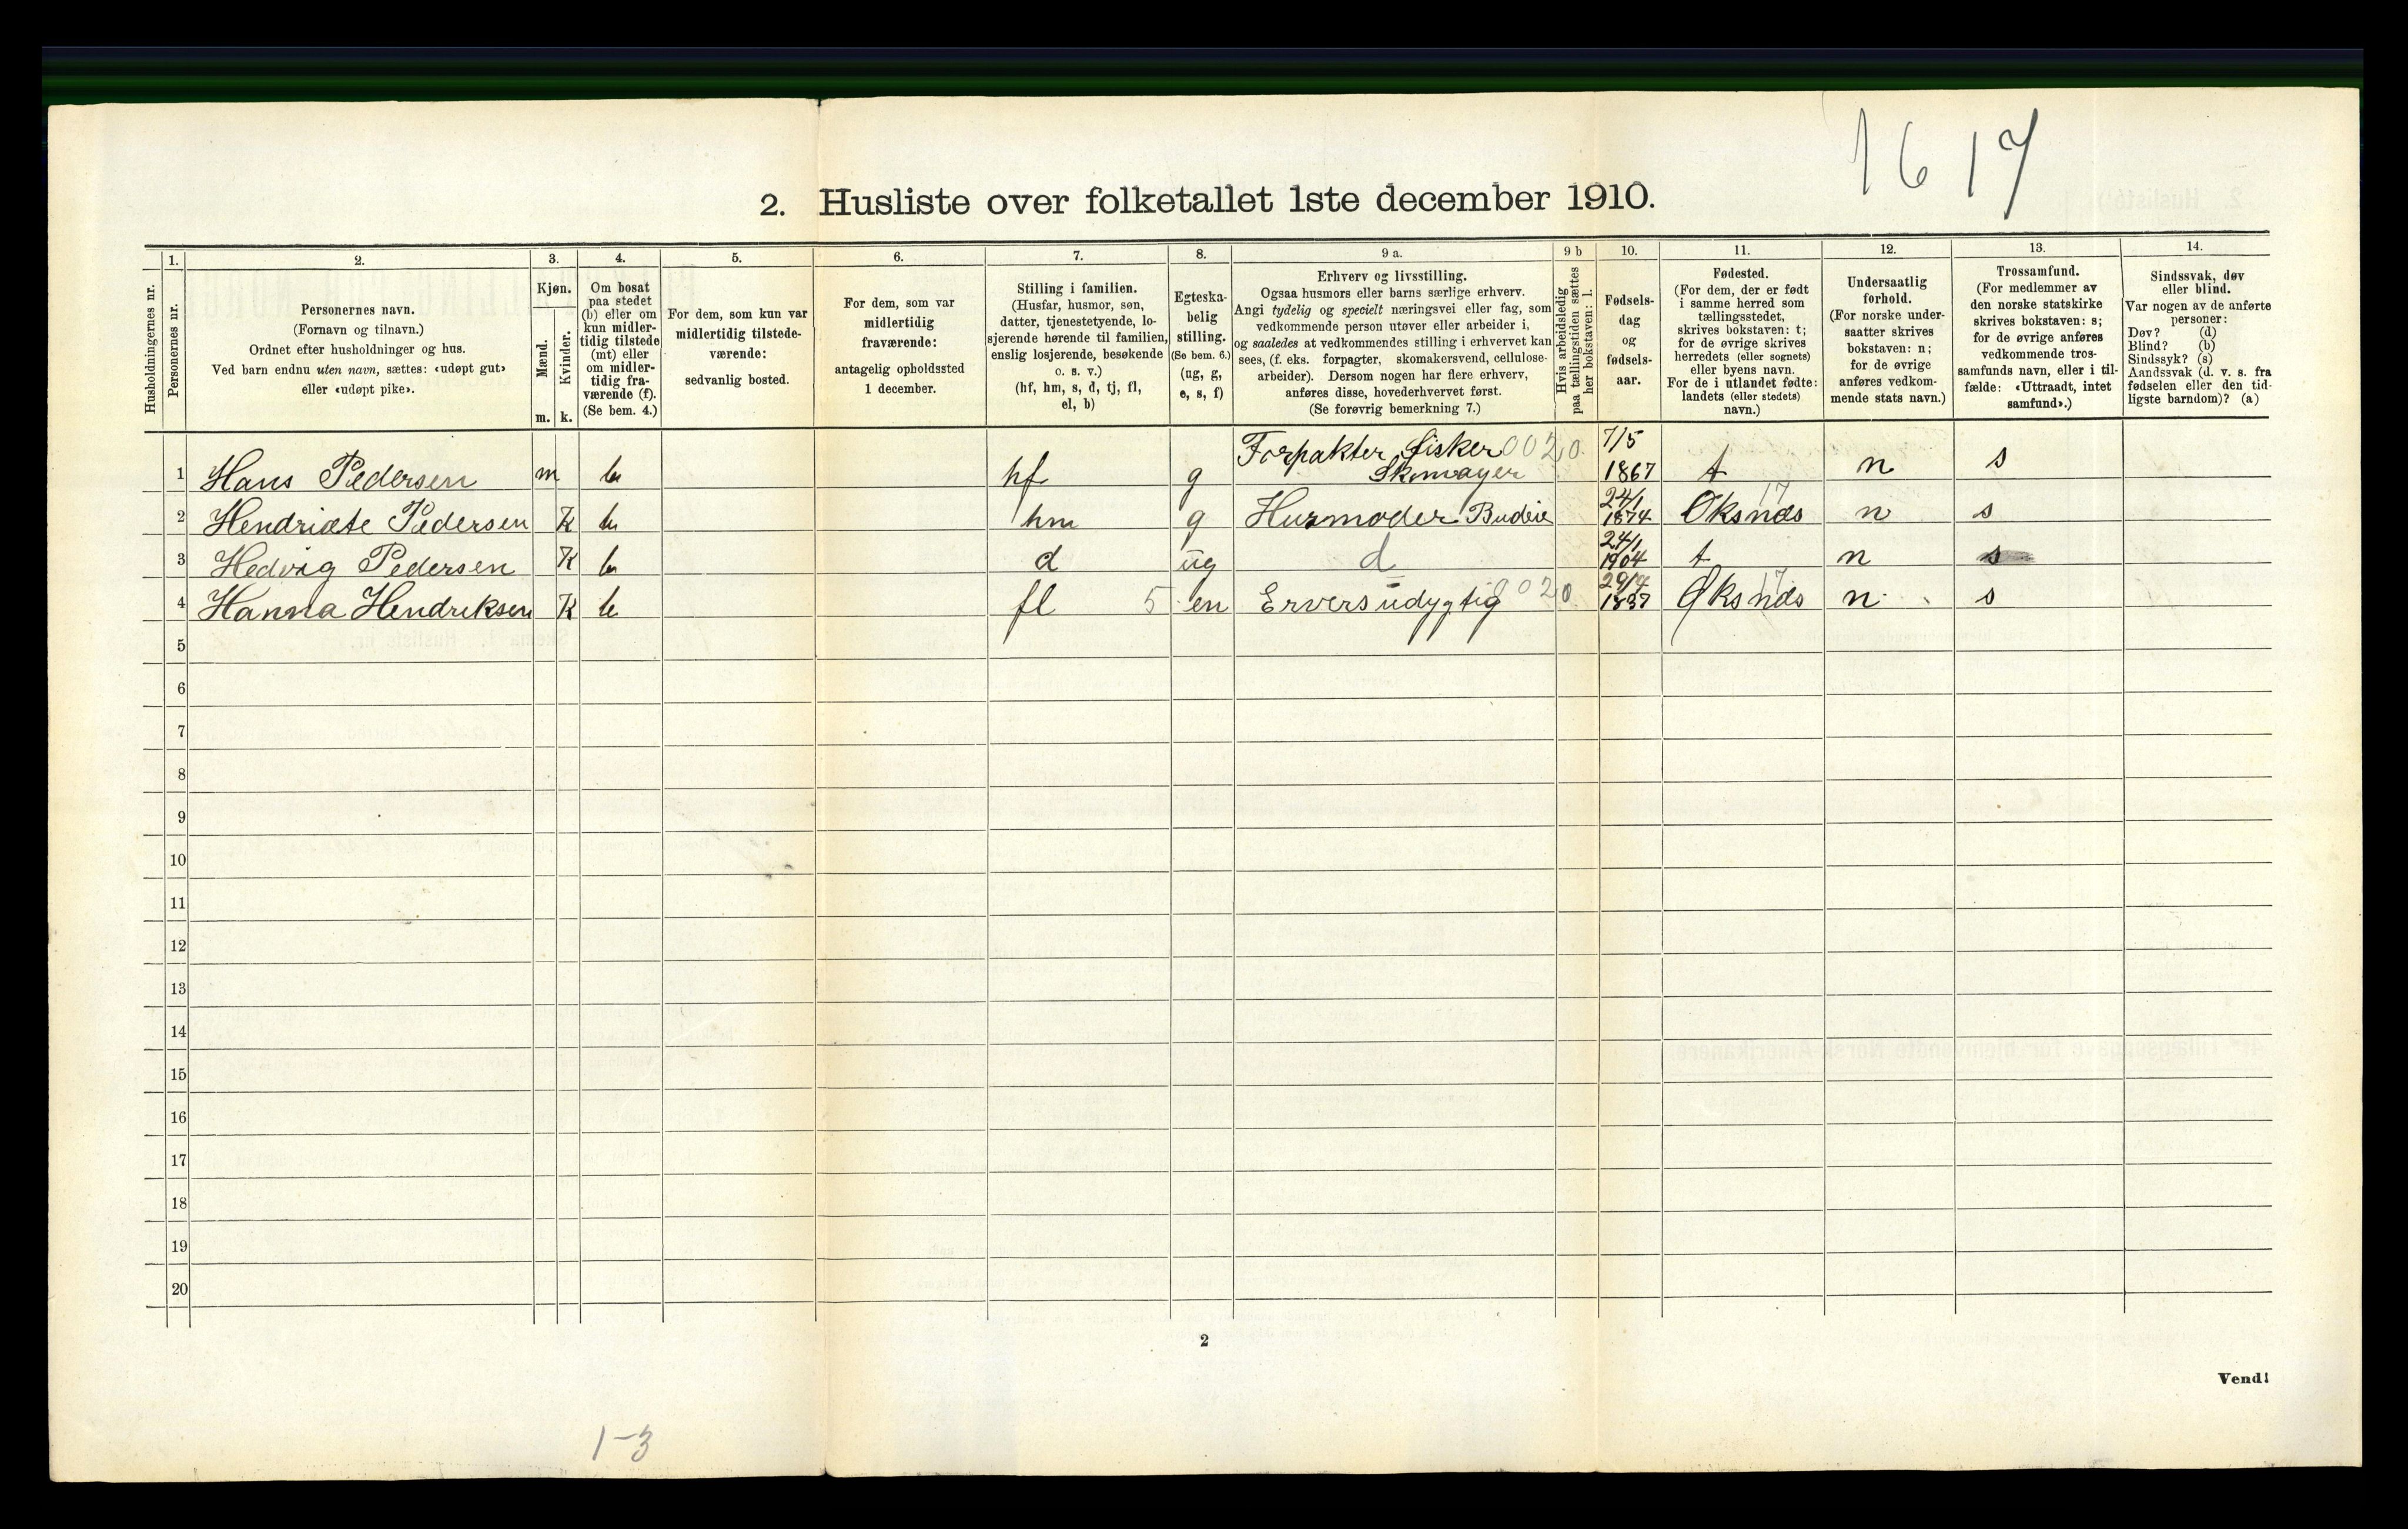 16 17
2. Husliste over folketallet 1ste december 1910.
Husholdningernes nr.
1.
Personernes nr.
2.
Personernes navn.
(Fornavn og tilnavn.)
Ordnet efter husholdninger og hus.
Ved barn endnu uten navn, sættes: «udøpt gut»
eller «udøpt pike».
3.
Kjøn.
Mænd.
Kvinder.
m. k.
4.
Om bosat
paa stedet
(b) eller om
kun midler-
tidig tilstede
(mt) eller
om midler-
tidig fra-
værende (f).
(Se bem. 4.)
5.
For dem, som kun var
midlertidig tilstede-
værende:
sedvanlig bosted.
6.
For dem, som var
midlertidig
fraværende:
antagelig opholdssted
1 december.
7.
Stilling i familien.
(Husfar, husmor, søn,
datter, tjenestetyende, lo-
sjerende hørende til familien,
enslig losjerende, besøkende
o. s. v.)
(hf, hm, s, d, tj, fl,
el, b)
8.
Egteska-
belig
stilling.
(Se bem. 6.)
(ug, g,
e, s, f)
9 a.
Erhverv og livsstilling.
Ogsaa husmors eller barns særlige erhverv.
Angi tydelig og specielt næringsvei eller fag, som
vedkommende person utøver eller arbeider i,
og saaledes at vedkommendes stilling i erhvervet kan
sees, (f. eks. forpagter, skomakersvend, cellulose-
arbeider). Dersom nogen har flere erhverv,
anføres disse, hovederhvervet først.
(Se forøvrig bemerkning 7.)
9 b
Hvis arbeidsledig
paa tællingstiden sættes
her bokstaven: l.
10.
Fødsels-
dag
og
fødsels-
aar.
11.
Fødested.
(For dem, der er født
i samme herred som
tællingsstedet,
skrives bokstaven: t;
for de øvrige skrives
herredets (eller sognets)
eller byens navn.
For de i utlandet fødte:
landets (eller stedets)
navn.)
12.
Undersaatlig
forhold.
(For norske under-
saatter skrives
bokstaven: n;
for de øvrige
anføres vedkom-
mende stats navn.)
13.
Trossamfund.
(For medlemmer av
den norske statskirke
skrives bokstaven: s;
for de øvrige anføres
vedkommende tros-
samfunds navn, eller i til-
fælde: «Uttraadt, intet
samfund».)
14.
Sindssvak, døv
eller blind.
Var nogen av de anførte
personer:
Døv? (d)
Blind? (b)
Sindssyk? (s)
Aandssvak (d. v. s. fra
fødselen eller den tid-
ligste barndom)? (a)
1 Hans Pedersen m b hf g Forpakter, fisker 0020 Skomager 7/5 1867 t n s
2 Hendriæte Pedersen K b hm g Husmoder Budeie 24/1 1874 Øksnæs 17 n s
3 Hedvig Pedersen K b d ug d 24/1 1904 t n s
4 Hanna Hendriksen K b fl 5 en Erversudygtig 0020 1837 Øksnæs 17 n s
5
6
7
8
9
10
11
12
13
14
15
16
17
18
19
20
2
Vend!
1-3